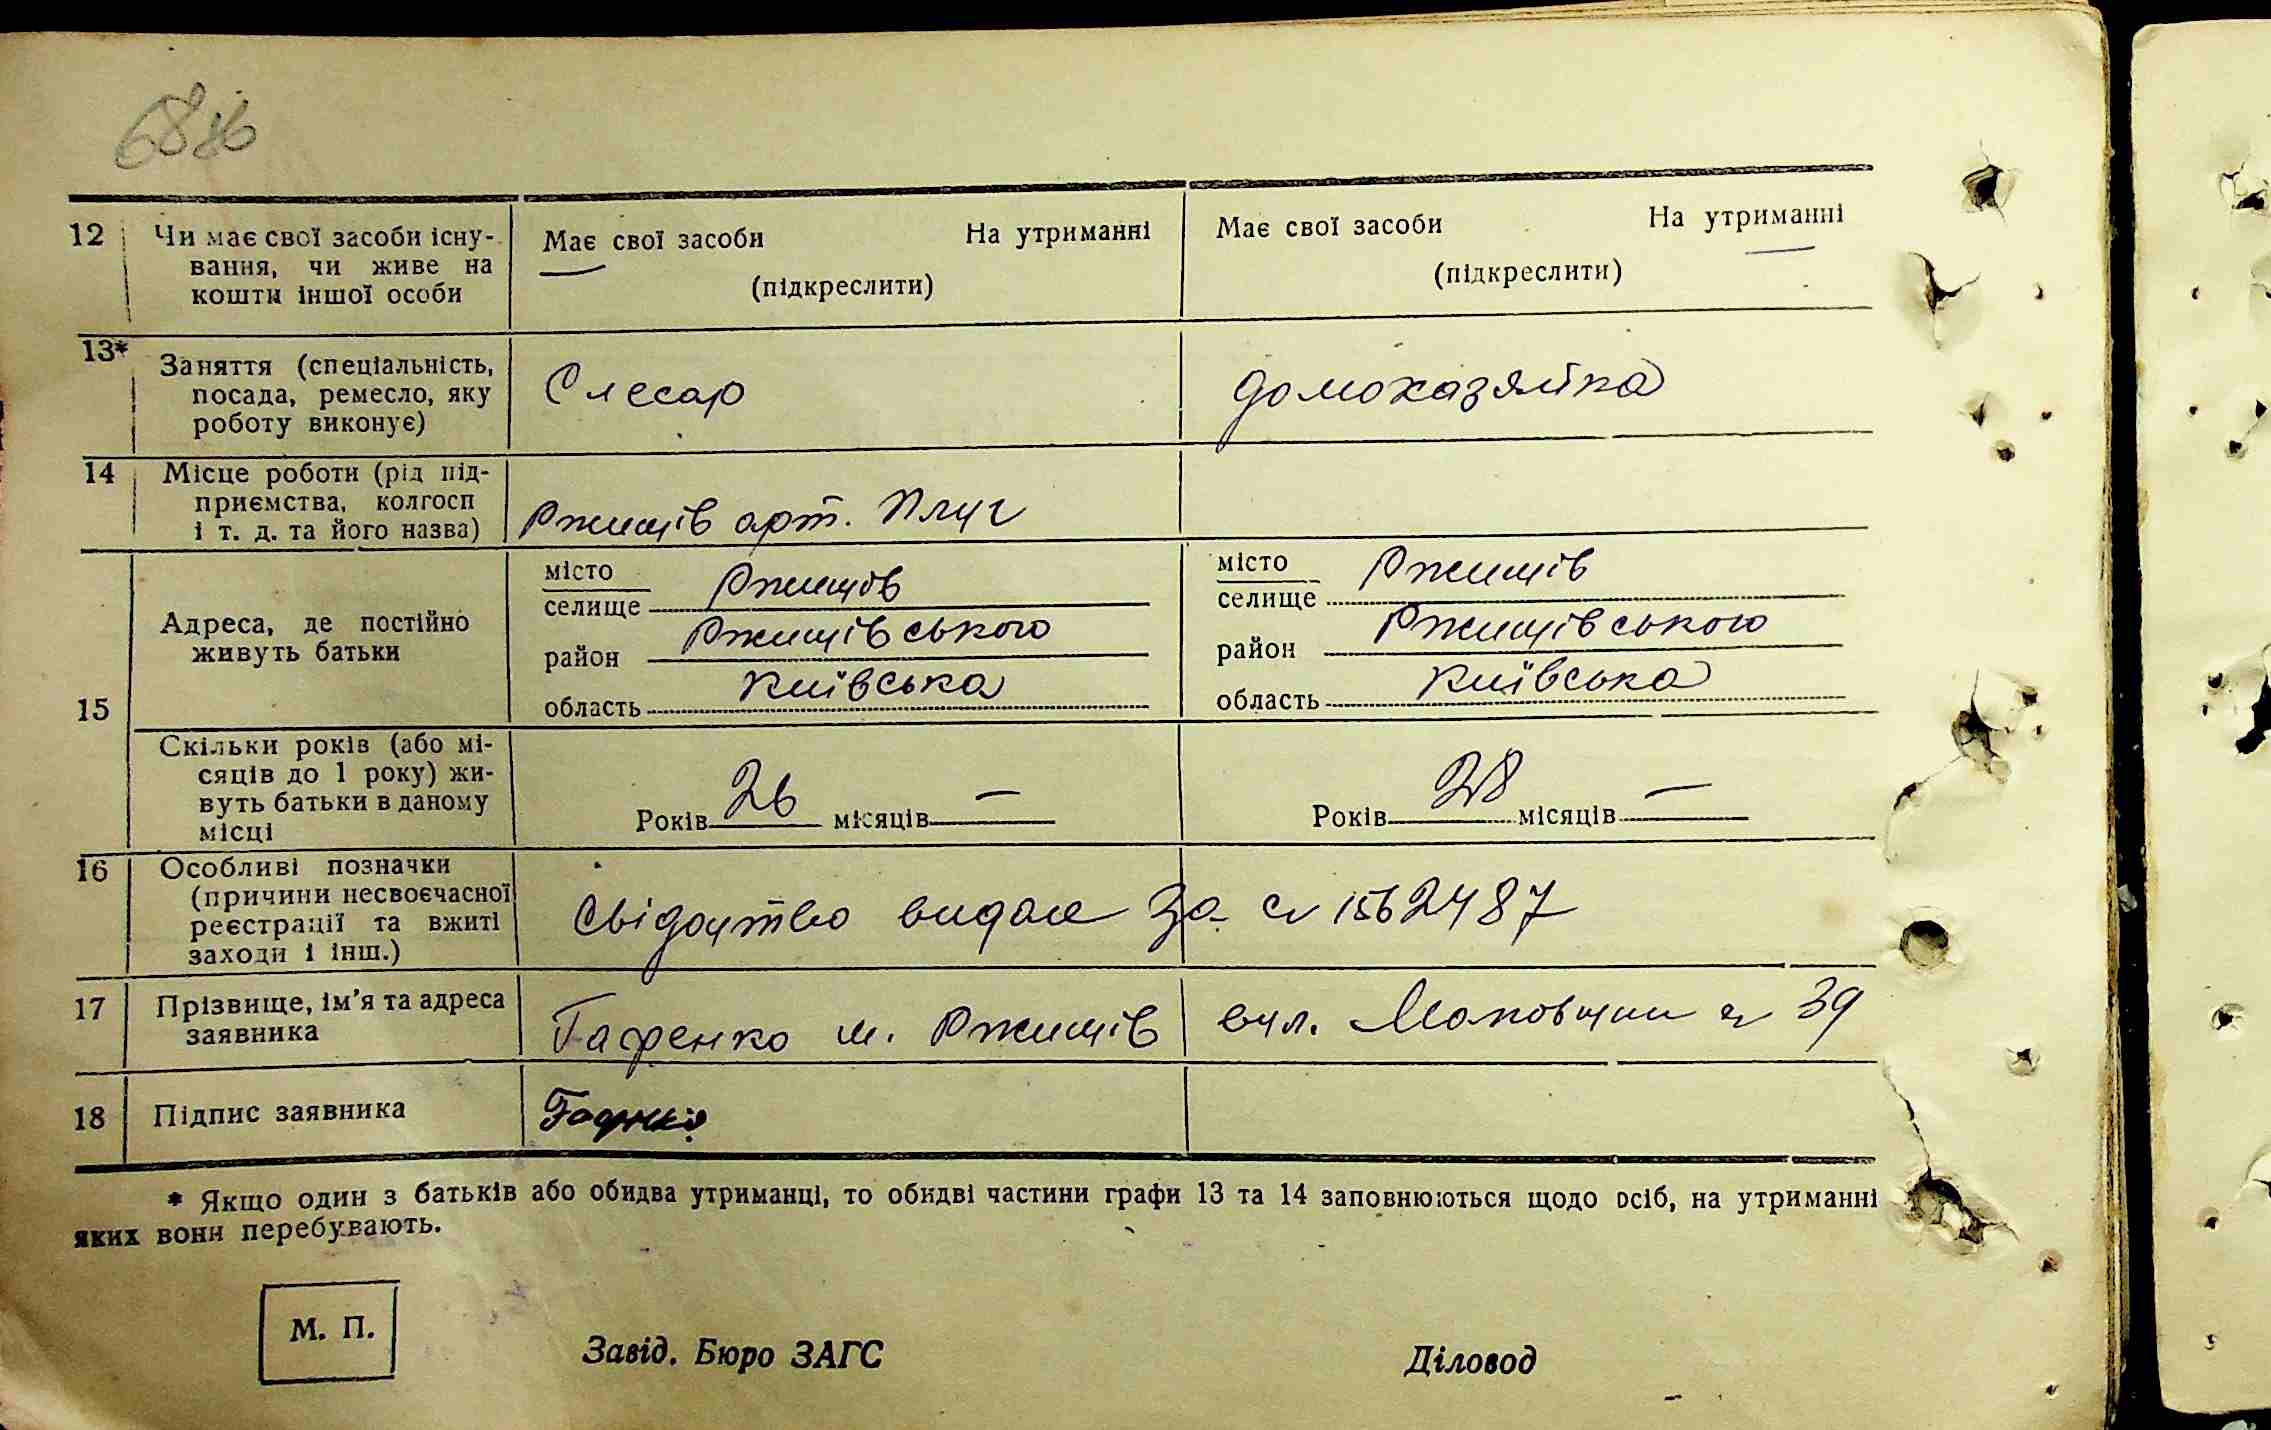 68
12 Чи має свої засоби існу- Має свої засоби На утриманні Має свої засоби На утриманні
вання, чи живе на (підкреслити) (підкреслити)
кошти іншої особи
13* Заняття (спеціальність, Слесар домохазяйка
посада, ремесло, яку
роботу виконує)
14 Місце роботи (рід під-
приємства, колгосп
і т. д. та його назва) Ржищів арт. Плуг
15 Адреса, де постійно
живуть батьки
місто Ржищів місто Ржищів
селище селище
район Ржищівського район Ржищівського
область Київська область Київська
Скільки років (або мі-
сяців до 1 року) жи-
вуть батьки в даному
місці Років 26 місяців — Років 28 місяців —
16 Особливі позначки
(причини несвоєчасної
реєстрації та вжиті
заходи і інш.) Свідоцтво видане за 1562487
17 Прізвище, ім'я та адреса
заявника Гафенко м. Ржищів вул. 39
18 Підпис заявника
* Якщо один з батьків або обидва утриманці, то обидві частини графи 13 та 14 заповнюються щодо осіб, на утриманні
яких вони перебувають.
М. П.
Завід. Бюро ЗАГС Діловод